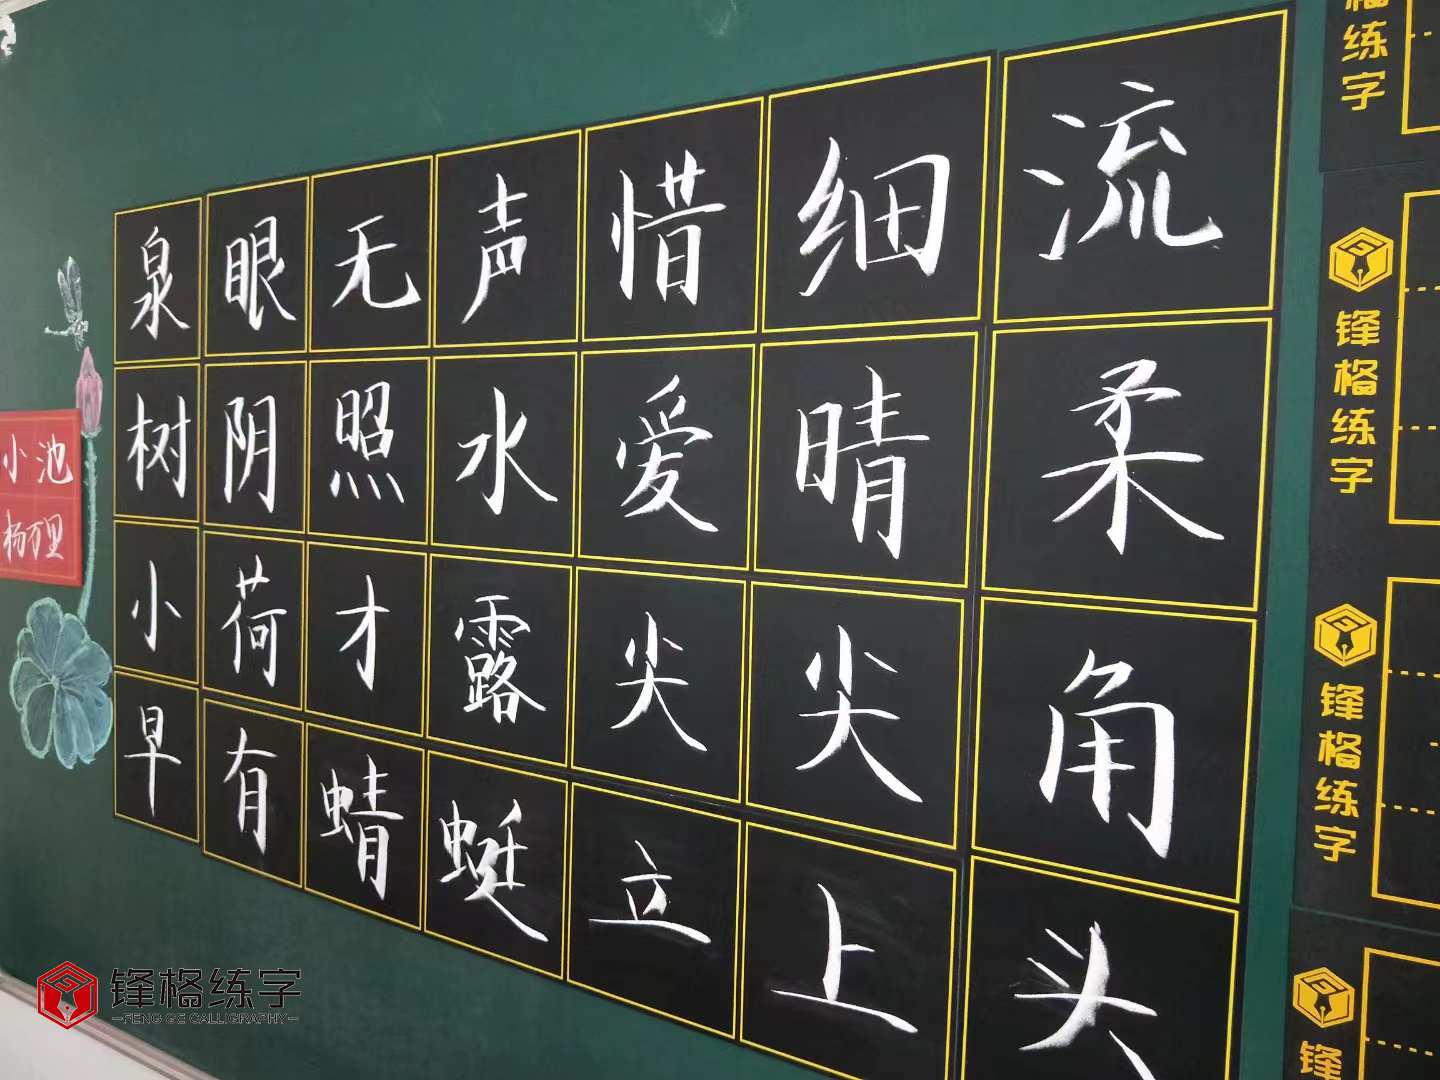 小池
杨万里
泉眼无声惜细流
树阴照水爱晴柔
小荷才露尖尖角
早有蜻蜓立上头
格练字
锋格练字
锋格练字
锋
锋格练字
FENG GE CALLIGRAPHY